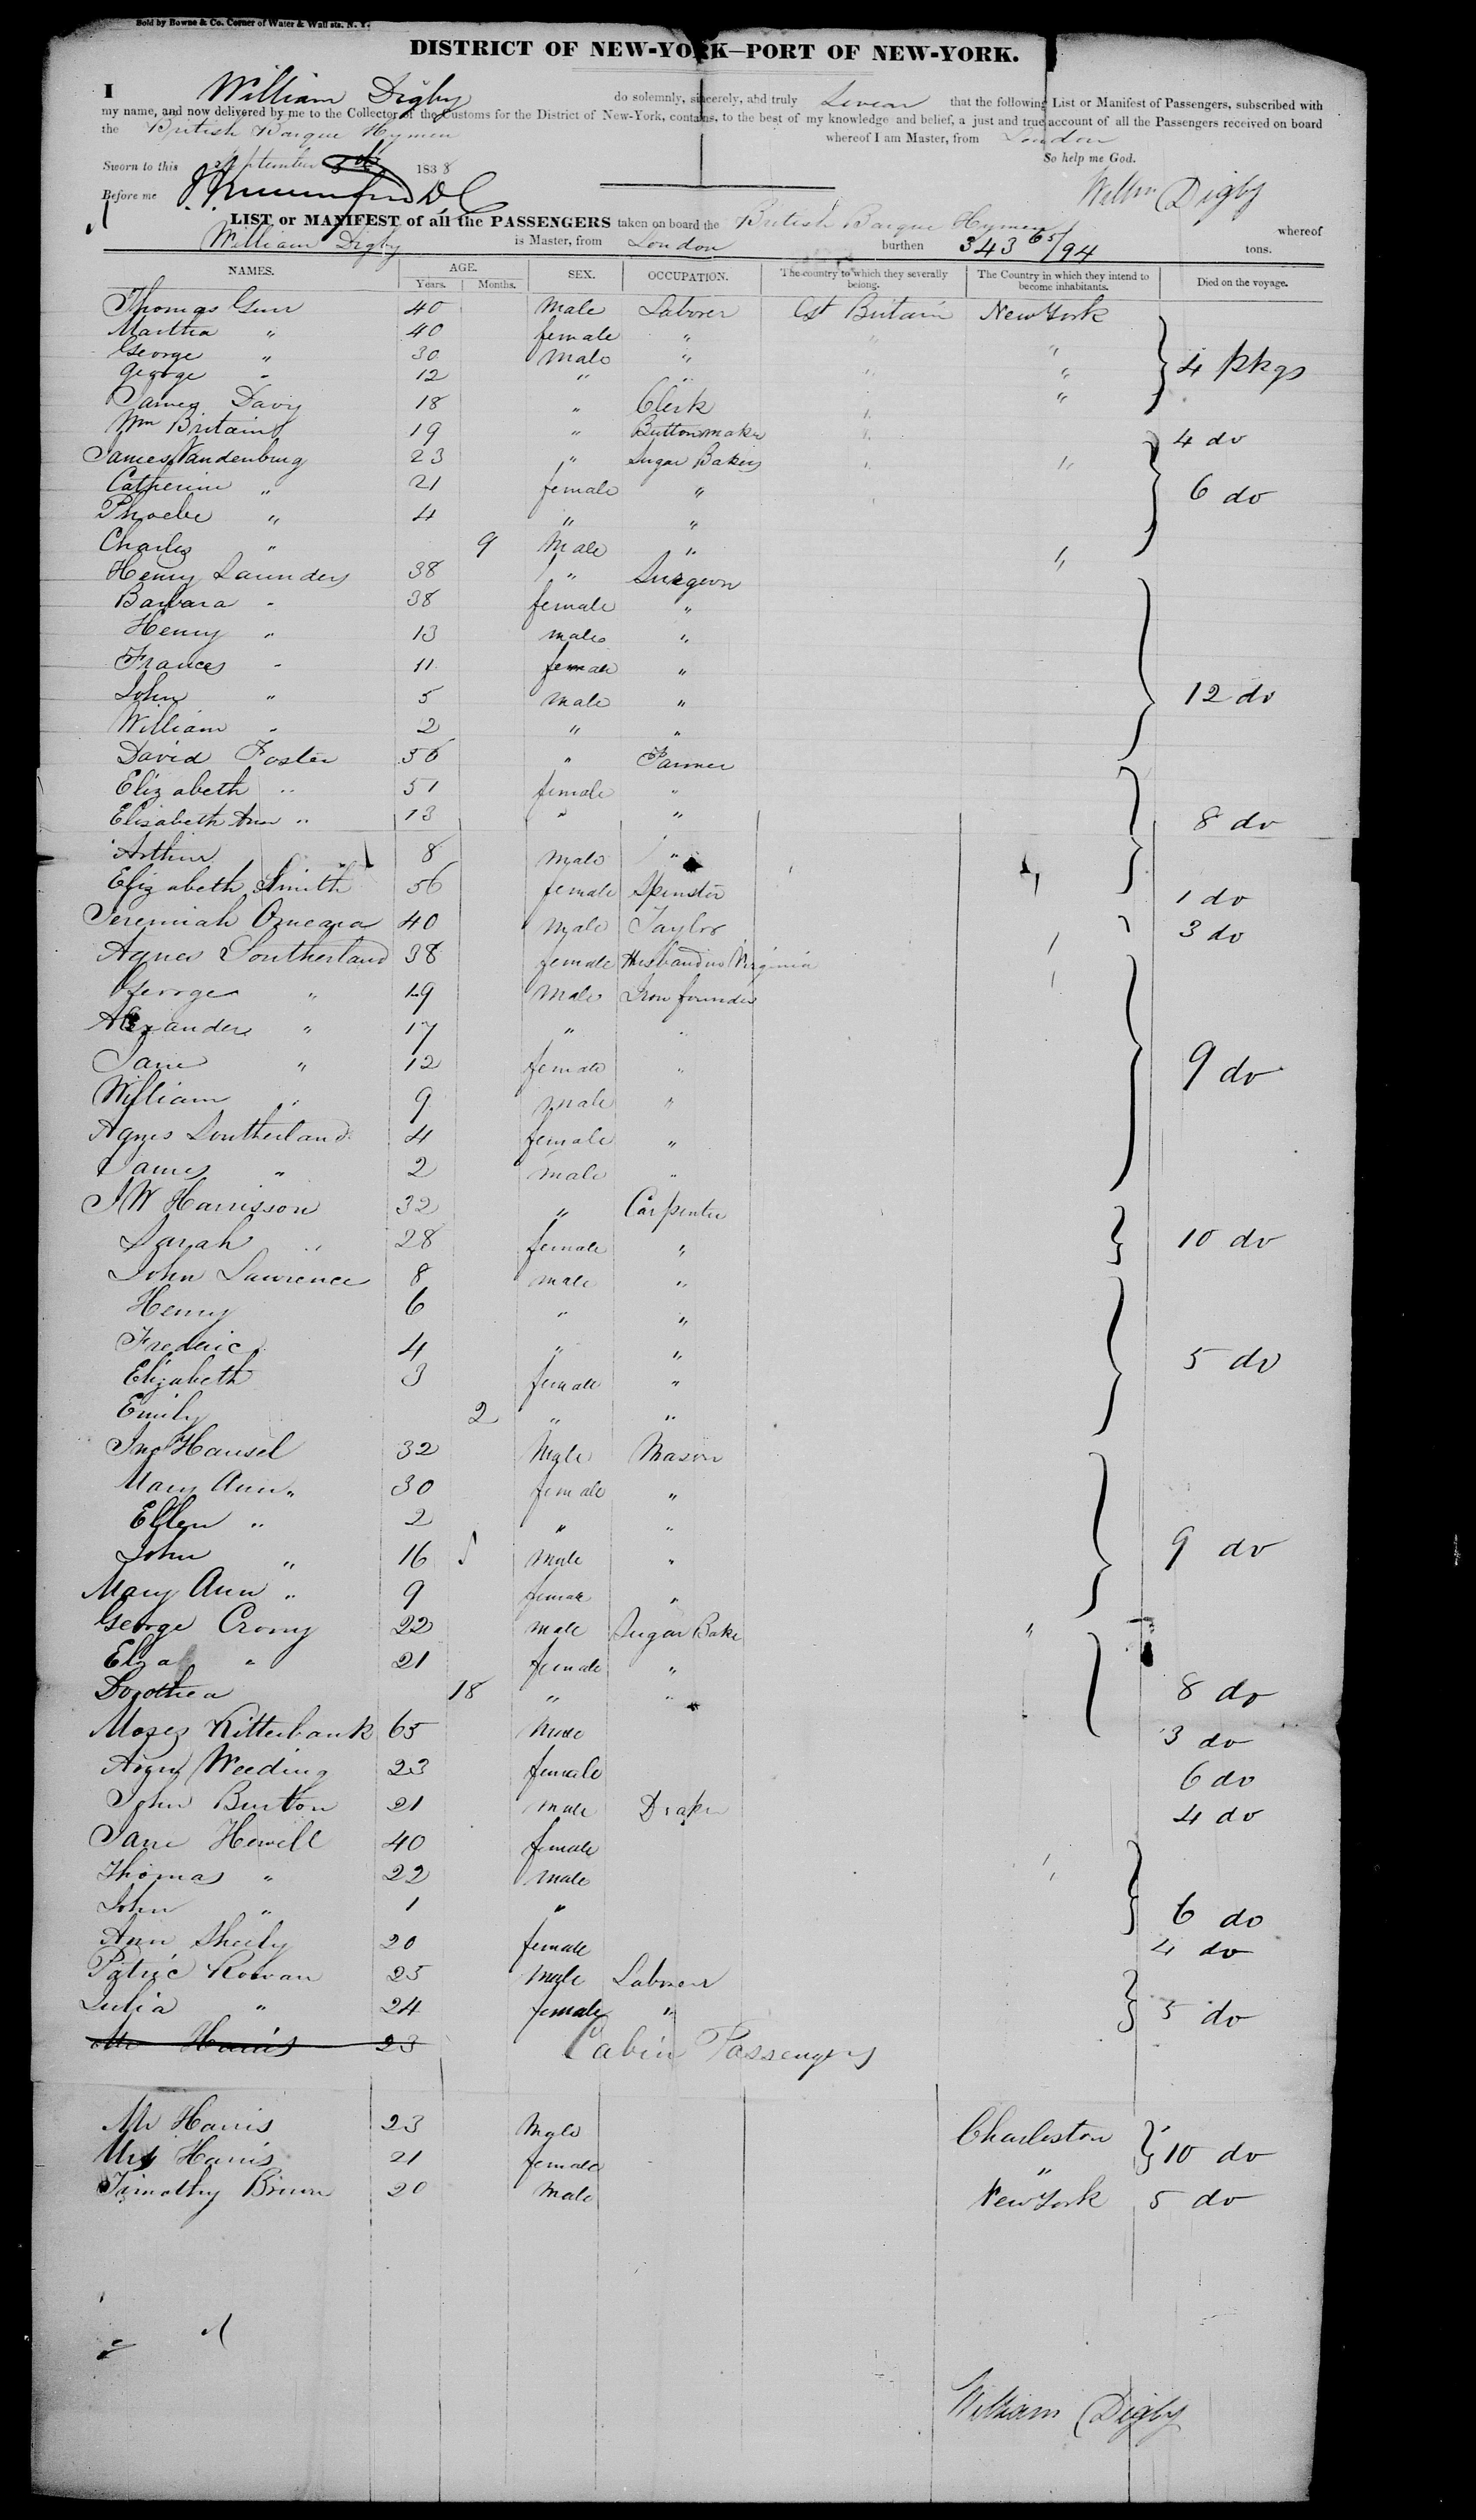 Sold by Bowne & Co. Corner of Water & Wall sts. N. Y.
DISTRICT OF NEW-YORK—PORT OF NEW-YORK.
I William Digby do solemnly, sincerely, and truly Swear that the following List or Manifest of Passengers, subscribed with
my name, and now delivered by me to the Collector of the Customs for the District of New-York, contains, to the best of my knowledge and belief, a just and true account of all the Passengers received on board
the British Barque Hymen whereof I am Master, from London
Sworn to this September 5th 1838 So help me God.
Before me Willm Digby
LIST or MANIFEST of all the PASSENGERS taken on board the British Barque Hymen whereof
William Digby is Master, from London burthen 343 65/94 tons.
NAMES. AGE. SEX. OCCUPATION. The country to which they severally belong. The Country in which they intend to become inhabitants. Died on the voyage.
Years. Months.
Thomas Gurr 40 Male Laborer Gt Britain New York
Martha " 40 female " " "
George " 30 Male " "
George " 12 " " " " 4 pkgs
James Davy 18 " Clerk " "
Wm Britain 19 " Button maker " 4 do
James Vandenburg 23 " Sugar Baker " "
Catherine " 21 female " " 6 do
Phoebe " 4 " "
Charles " 9 Male " "
Henry Saunders 38 " Surgeon
Barbara " 38 female "
Henry " 13 male "
Frances " 11 female "
John " 5 male " 12 do
William " 2 " "
David Foster 56 " Farmer
Elizabeth " 51 female "
Elisabeth Ann " 13 " " 8 do
Arthur 8 Male "
Elizabeth Smith 56 female Spinster 1 do
Jeremiah Omeara 40 Male Taylor 3 do
Agnes Southerland 38 female Husband in Virginia
George " 19 Male Iron founder
Alexander " 17 "
Jane " 12 female " 9 do
William " 9 male "
Agnes Southerland 4 female "
James " 2 male "
J W Harrisson 32 " Carpenter
Sarah " 28 female " 10 do
John Lawrence 8 male "
Henry 6 " "
Frederic 4 " " 5 do
Elizabeth 3 female "
Emily 2 " "
Jno Hansel 32 Male Mason
Mary Ann " 30 female "
Ellen " 2 " "
John " 16 Male " 9 do
Mary Ann " 9 female "
George Crony 22 male Sugar Bake "
Elza " 21 female "
Dorothea 18 " " 8 do
Moses Kitterbank 65 Male 3 do
Weeding 23 female 6 do
John Burton 21 male Draper 4 do
Jane Hewell 40 female
Thomas " 22 male
John " 1 " 6 do
Ann Sheely 20 female 4 do
Patric Rowan 25 Male Laborer
Julia " 24 female " 5 do
Mr Harris 23 Cabin Passengers
Mr Harris 23 Male Charleston
Mrs Harris 21 female " 10 do
Timothy Brown 20 Male New York 5 do
William Digby